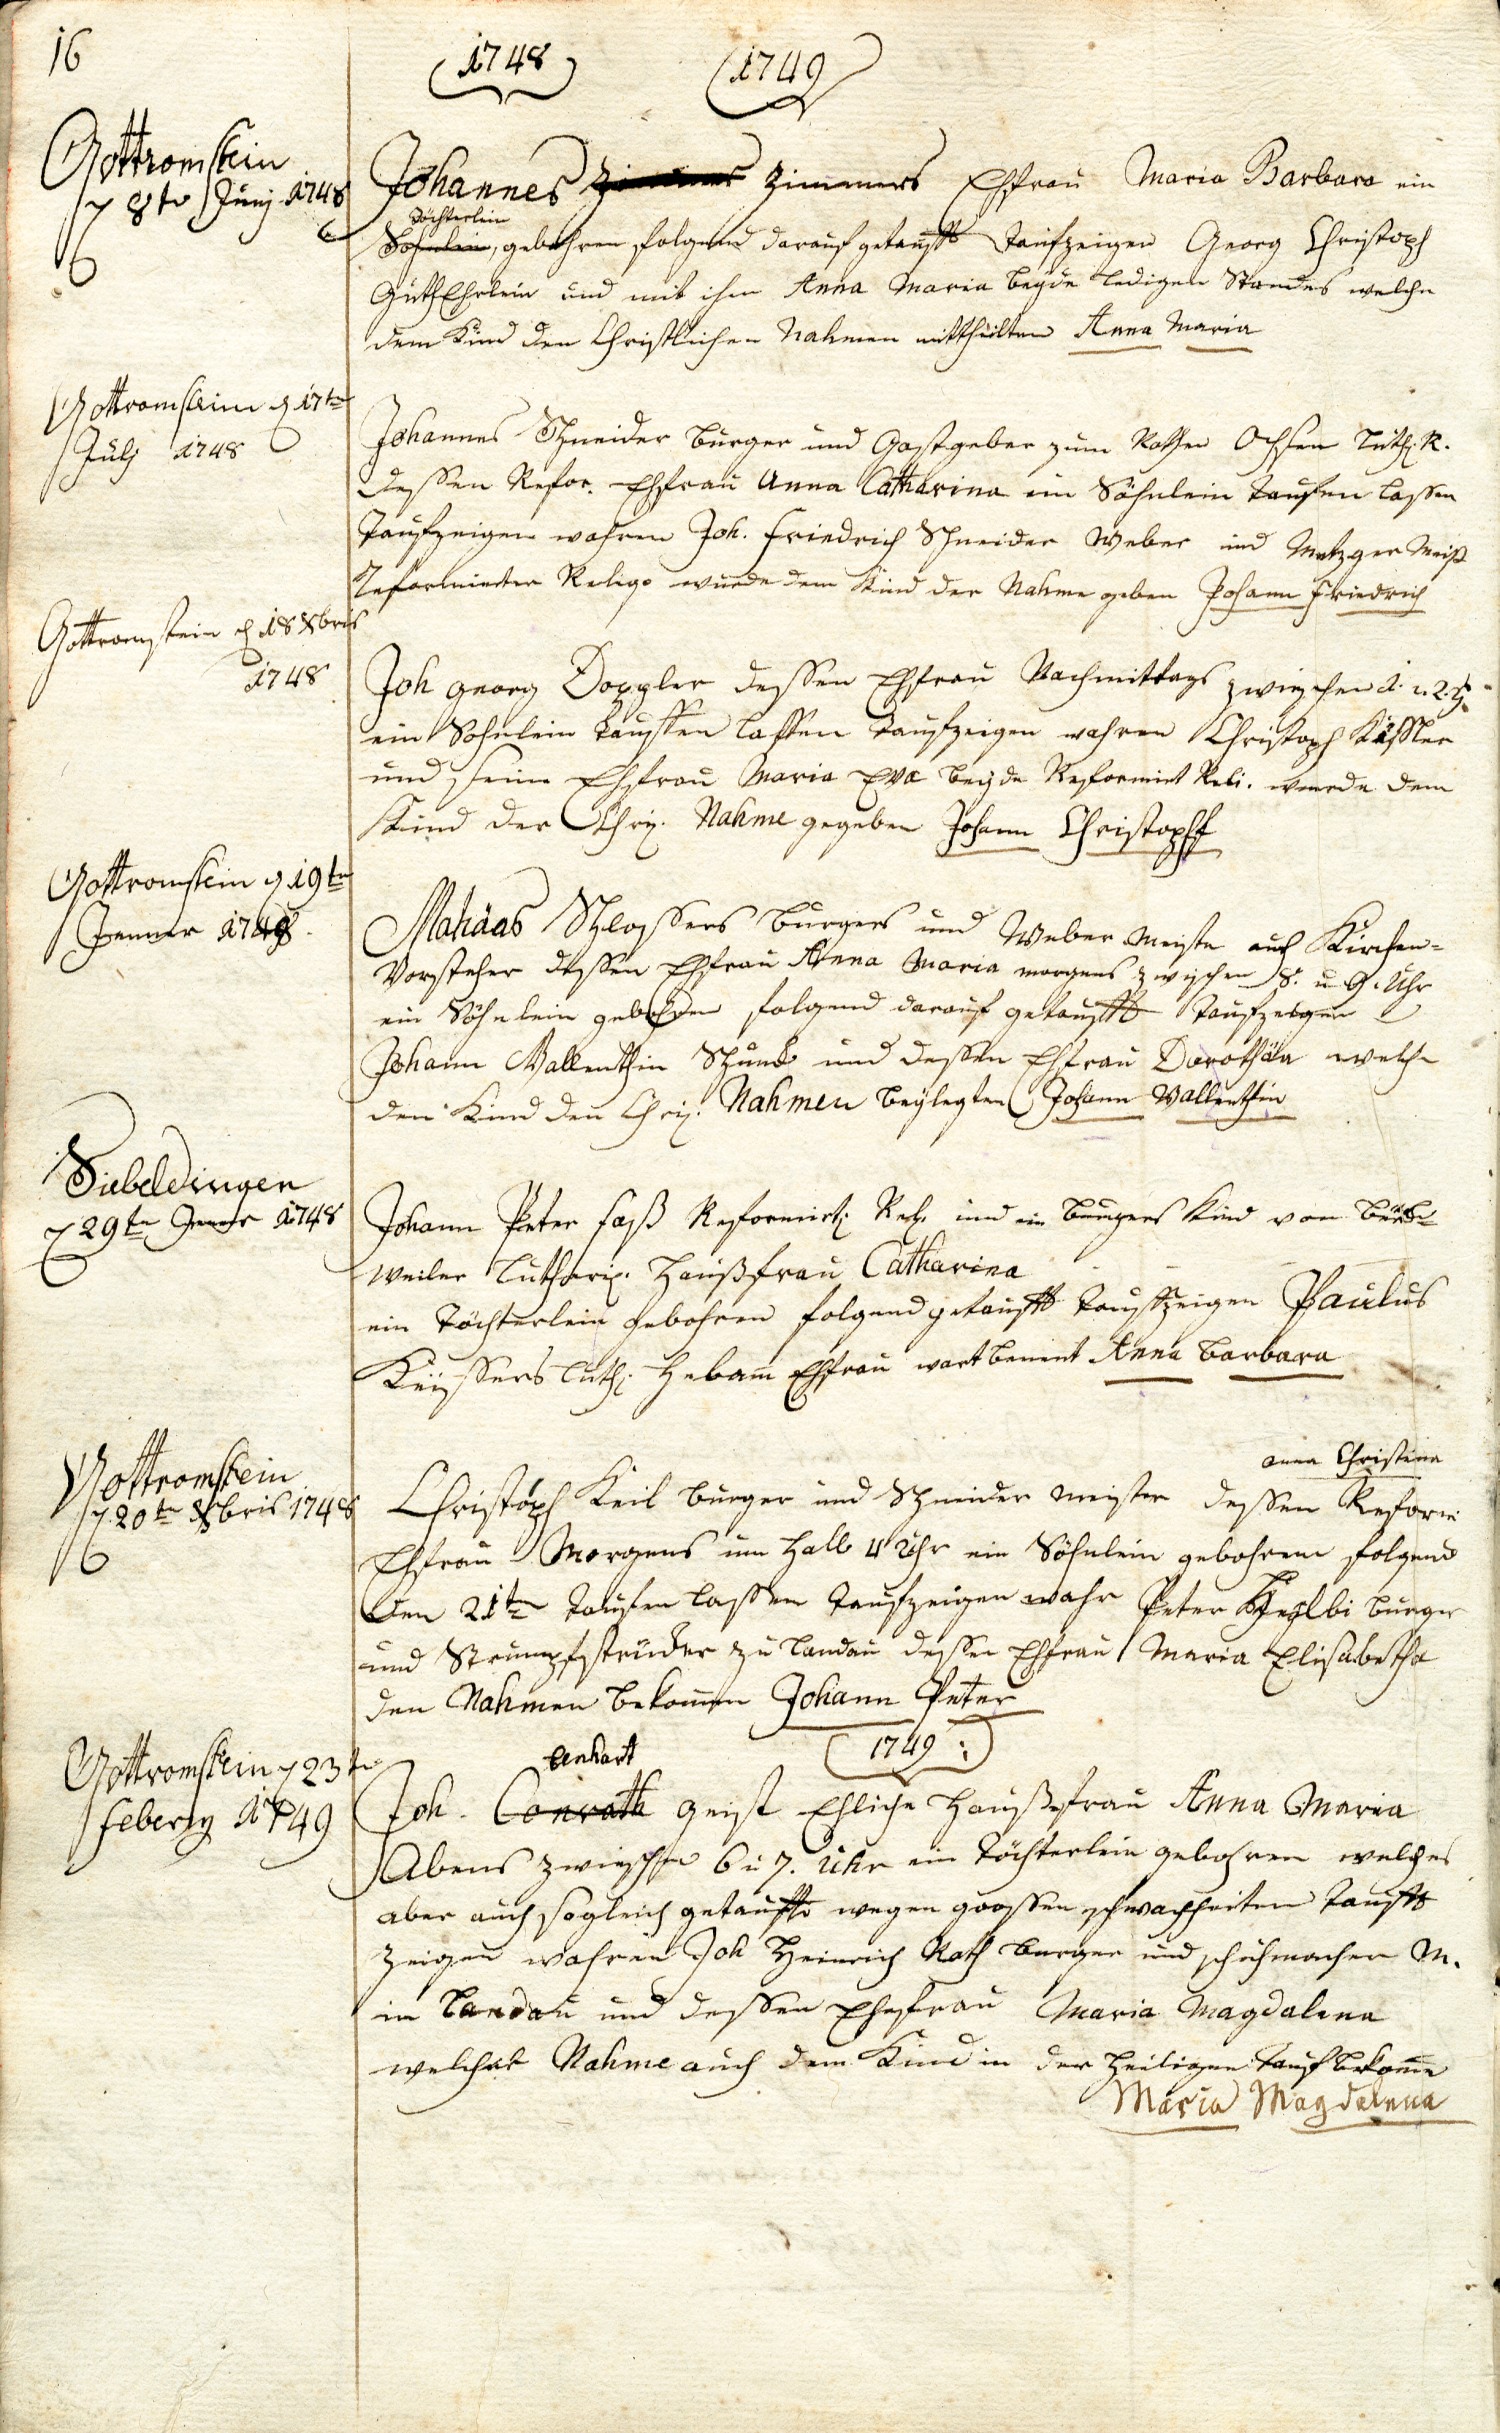 16
1748
1749
Gottromstein
8te Junj 1748
Johannes Zimmers Ehfrau Maria Barbara ein
Töchterlein
Söhnlein, gebohren folgend darauf getaufft Taufzeigen Georg Christoph
GuthEhrlein und mit ihm Anna Maria beyde ledigen Standes welche
dem Kind den Christlichen Nahmen mittheilten Anna Maria
Gottromstein d 17te
Julj 1748
Johannes Schneider burger und Gastgeber zum Rothen Ochsen Luth. R.
dessen Refor. Ehfrau Anna Catharina ein Söhnlein taufen lassen
Taufzeigen wahren Joh. Friedrich Schneider Weber und Metzger Meist
Reformirter Relig. wurde dem Kind der Nahme geben Johann Friedrich
Gottromstein d 18 Xbris
1748
Joh Georg Doppler dessen Ehfrau Nachmittags zwischen 1. u. 2.
ein Sohnlein tauffen lassen taufzeigen wahren Christoph Kässler
und seine Ehfrau Maria Eva beyde Reformirt Reli. wurde dem
Kind der Chri. Nahme gegeben Johann Christopff
Gottromstein d 19te
Jenner 1748
Mahäas Schlossers burgers und Weber Meister auch Kirchen-
Vorsteher dessen Ehfrau Anna Maria morgens zwischen 8. u 9. Uhr
ein Söhnlein gebohren folgend darauf getaufft taufzeigen
Johann Vallenthin Schunck und dessen Ehfrau Dorothäa welche
dem Kind den Chri. Nahmen beylegten Johann Vallenthin
Siebeldingen
d 29te Jenner 1748
Johann Peter Fass Reformirt. Rel. und ein burgers Kind von
weiler Lutheri. Haußfrau Catharina
ein Töchterlein gebohren folgend getaufft Tauffzeigen Paulus
Keyssers Luth. Hebam Ehfrau wart benent Anna Barbara
Gottromstein
d 20te Xbris 1748
anna Christina
Christoph Keil burger und Schneider Meister dessen Reform
Ehfrau Morgens um halb 4 Uhr ein Söhnlein gebohren folgend
den 21te taufen lassen taufzeigen wahr Peter burger
und Strumpfstricker zu Landau dessen Ehfrau Maria Elisabetha
den Nahmen bekommen Johann Peter
1749
Gottromstein d 23te
Febery 1749
Lenhart
Joh. Conrath Geist Ehliche Haußfrau Anna Maria
Abens zwischen 6 u 7. Uhr ein Töchterlein gebohren welches
aber auch sogleich getauffte wegen grossen schwachheiten taufft
zeigen wahren Joh Heinrich Roth burger und schuhmacher M.
in Landau und dessen Ehefrau Maria Magdalena
welcher Nahme auch dem Kind in der heiligen tauf bekomen
Maria Magdalena